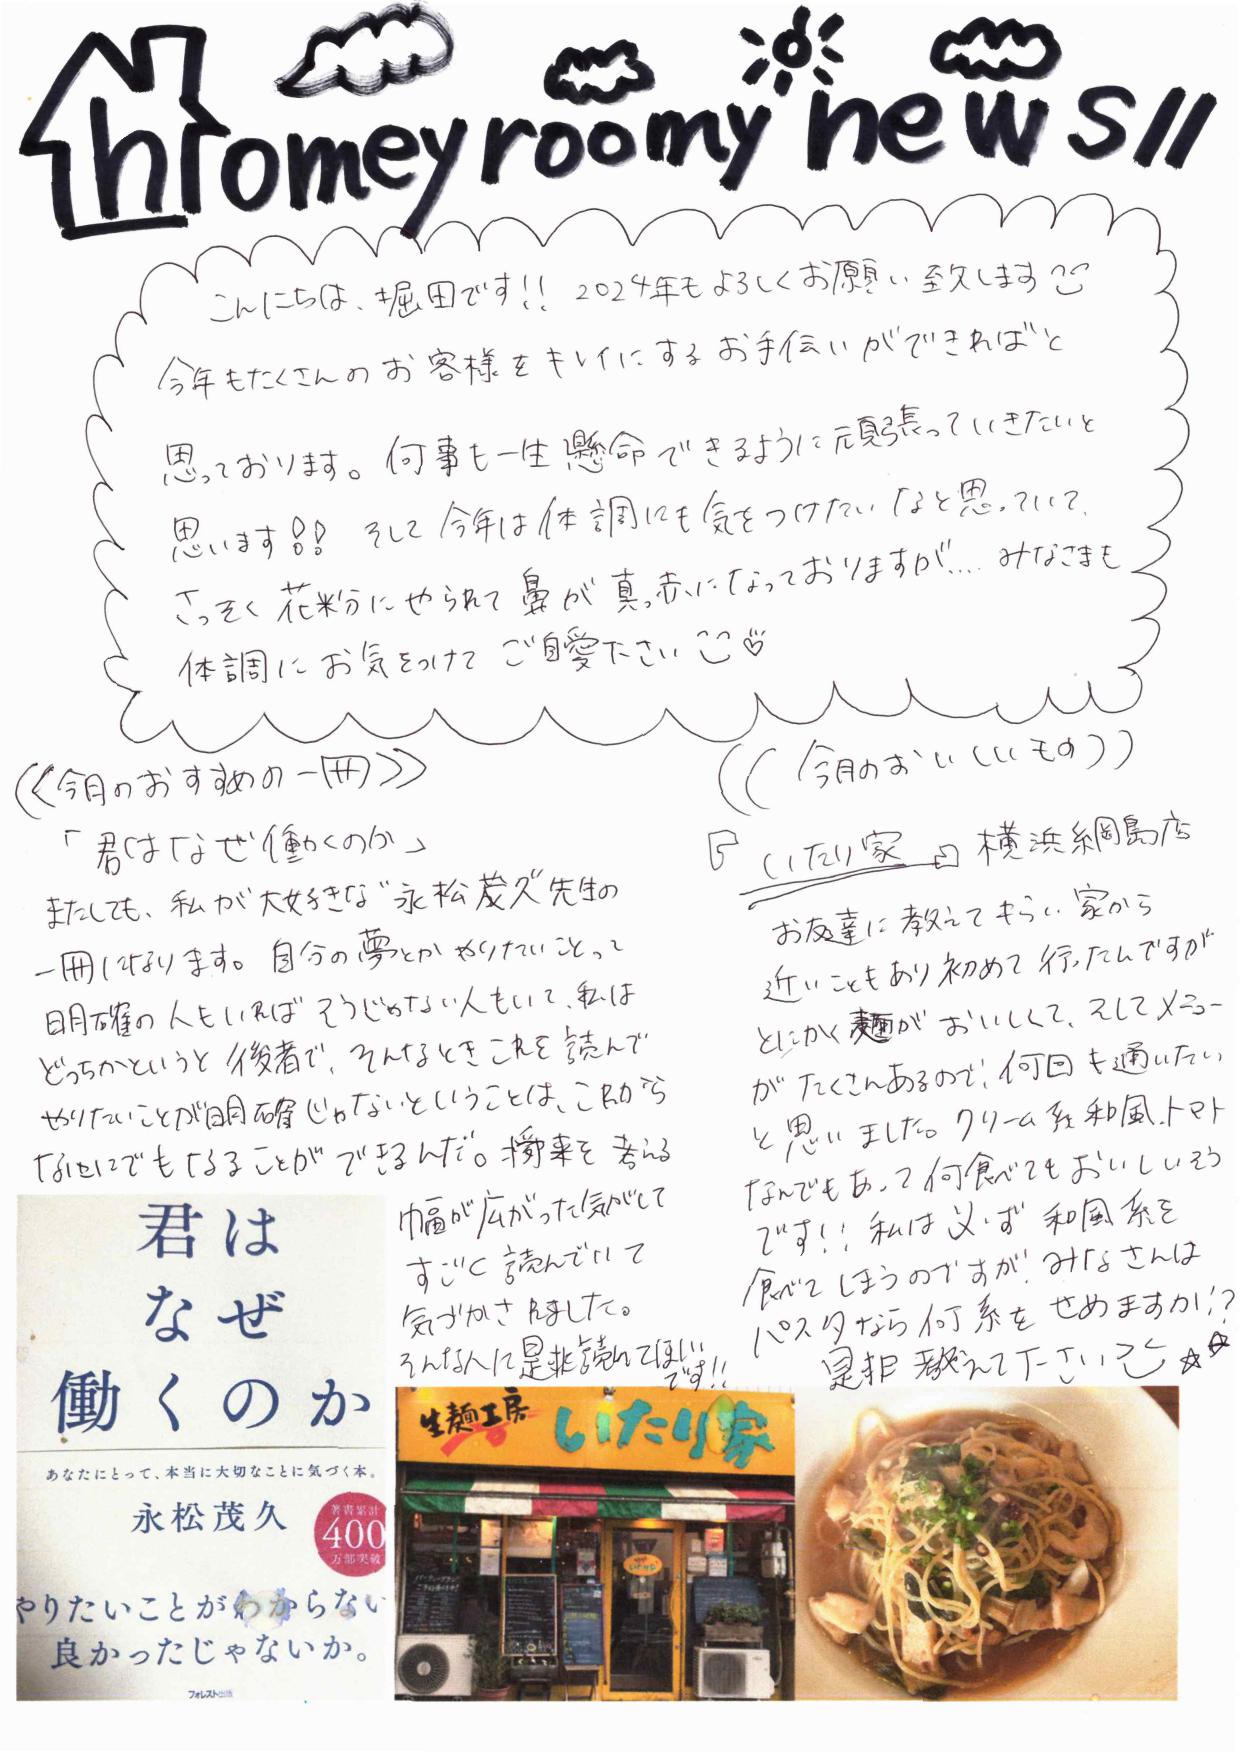 homeyroomy news!!
こんにちは、堀田です!! 2024年もよろしくお願い致します
今年もたくさんのお客様をキレイにするお手伝いができればと
思っております。何事も一生懸命できるように頑張っていきたいと
思います!! そして今年は体調にも気をつけたいなと思っていて、
さっそく花粉にやられて鼻が真っ赤になっておりますが.... みなさまも
体調にお気をつけてご自愛下さい
《今月のおすすめの一冊》
「君はなぜ働くのか」
またしても、私が大好きな"永松茂久"先生の
一冊になります。自分の夢とかやりたいことって
明確の人もいればそうじゃない人もいて、私は
どっちかというと後者で、そんなときこれを読んで
やりたいことが明確じゃないということは、これから
なににでもなることができるんだ。将来を考える
幅が広がった気がして
すごく読んでいて
気づかされました。
そんな人に是非読んでほしい
です!!
((今月のおいしいもの))
『いたり家』横浜綱島店
お友達に教えてもらい家から
近いこともあり初めて行ったんですが
とにかく麺がおいしくて、そしてメニュー
がたくさんあるので、何回も通いたい
と思いました。クリーム系和風、トマト
なんでもあって何食べてもおいしいそう
です!! 私は必ず和風系を
食べてしまうのですが、みなさんは
パスタなら何系をせめますか!?
是非教えて下さい
君は
なぜ
働くのか
あなたにとって、本当に大切なことに気づく本。
永松茂久
著書累計
400
万部突破
やりたいことがわからない
良かったじゃないか。
フォレスト出版
生麺工房 いたり家